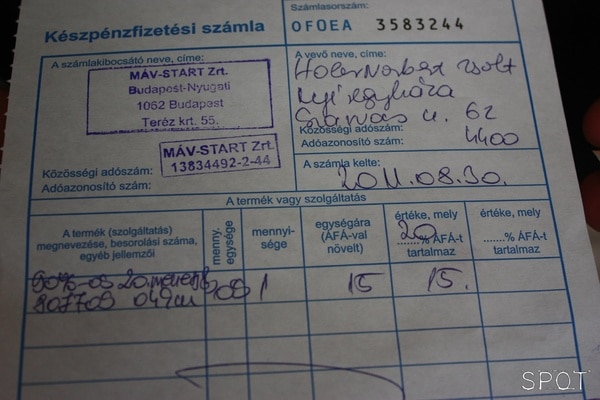 Készpénzfizetési számla
Számlasorszám:
OFOEA 3583244
A számlakibocsátó neve, címe:
MÁV-START Zrt.
Budapest-Nyugati
1062 Budapest
Teréz krt. 55.
MÁV-START Zrt.
13834492-2-44
Közösségi adószám:
Adóazonosító szám:
A vevő neve, címe:
Norbert Zsolt
Nyíregyháza
u. 62
Közösségi adószám:
Adóazonosító szám:
4400
A számla kelte:
2011.08.30.
A termék vagy szolgáltatás
A termék (szolgáltatás)
megnevezése, besorolási száma,
egyéb jellemzői
menny.
egysége
mennyi-
sége
egységára
(ÁFÁ-val
növelt)
értéke, mely
20
.......% ÁFÁ-t
tartalmaz
értéke, mely
.......% ÁFÁ-t
tartalmaz
90%-os
1 15 15.
807709
SPOT